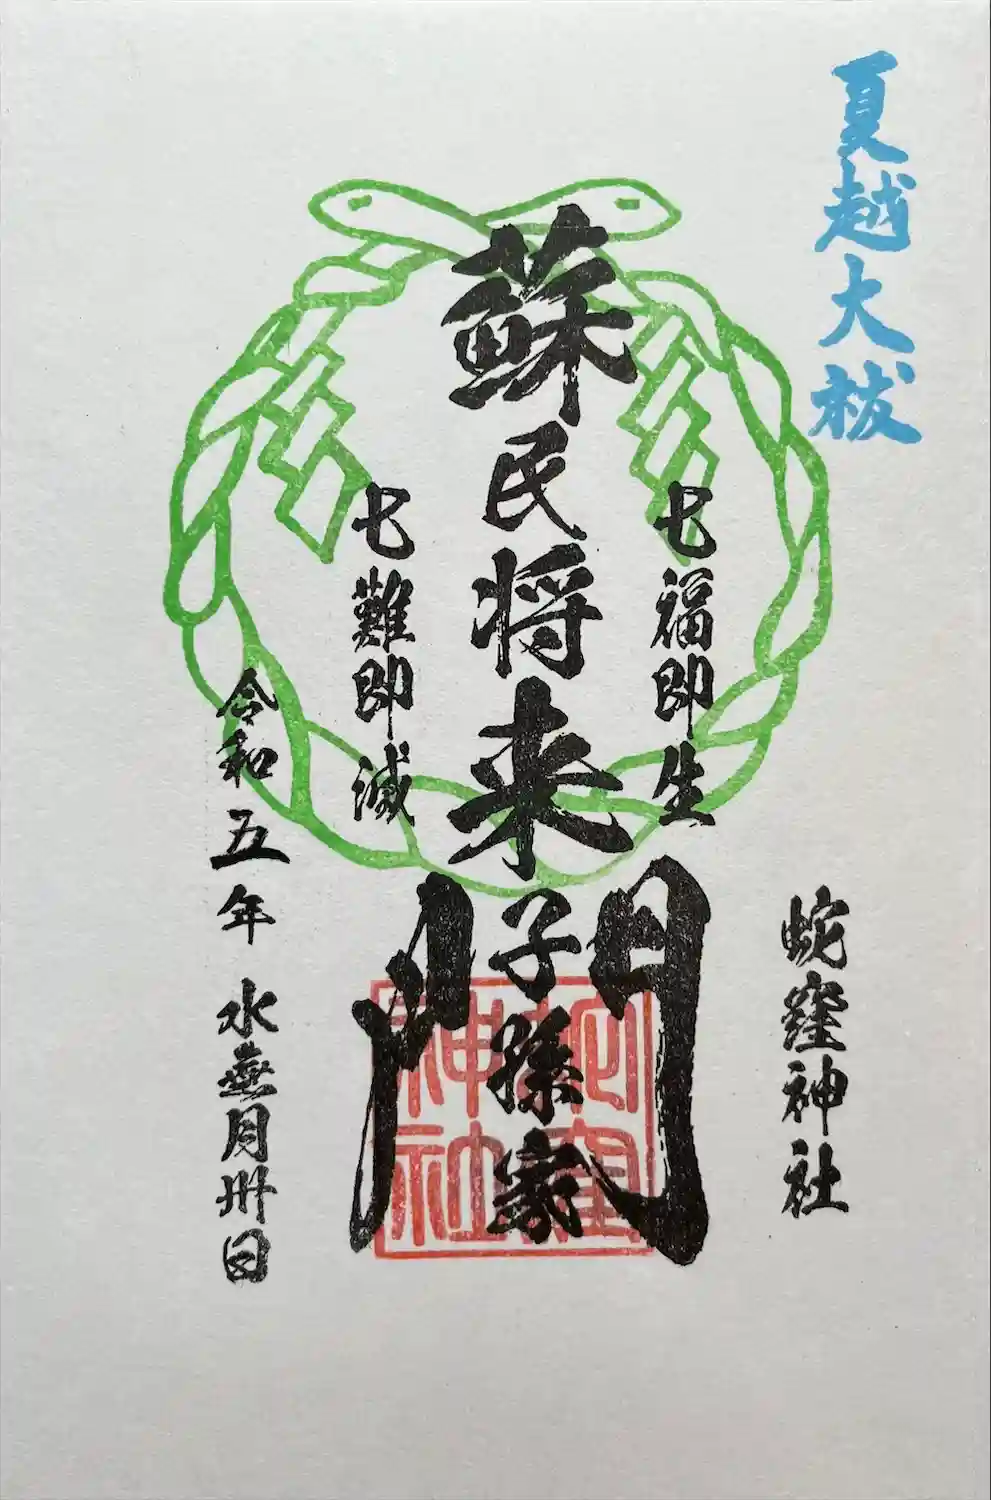 夏越大祓
蛇窪神社
七福即生
蘇民将来子孫家門
七難即滅
令和五年 水無月卅日
蛇窪
神社